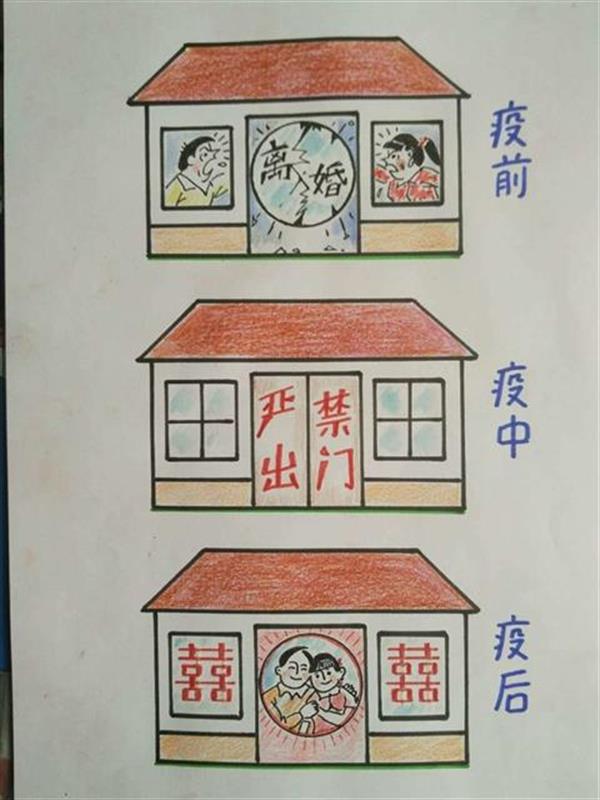 离婚
疫前
严禁
出门
疫中
囍 囍
疫后